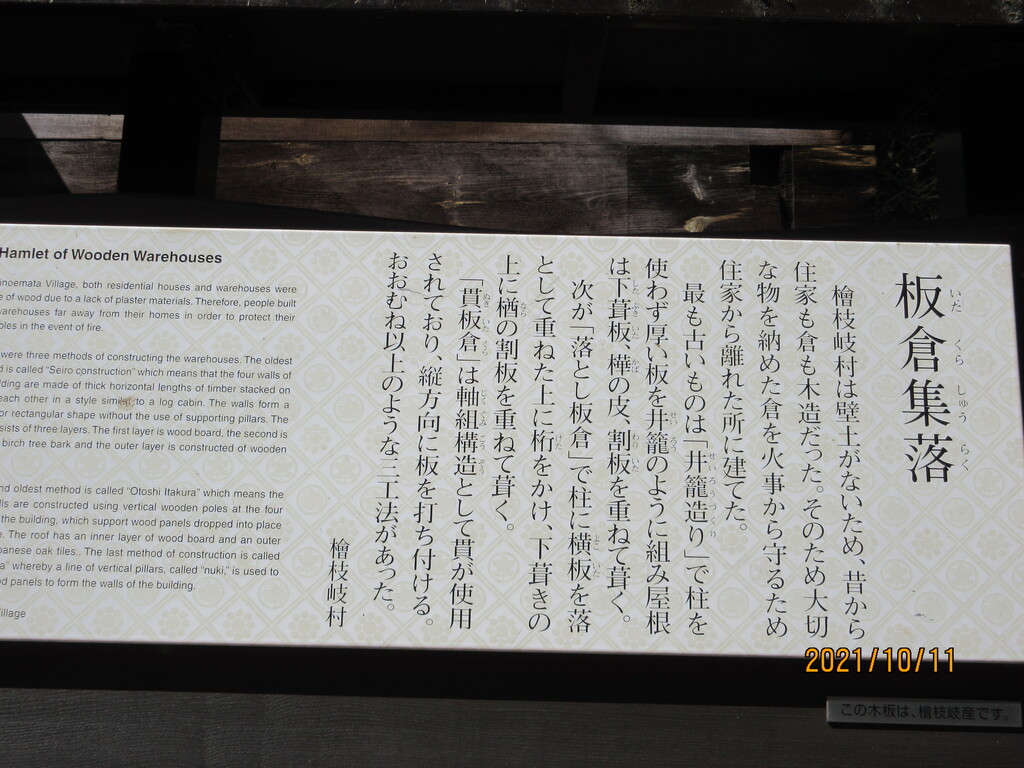 板倉集落
いた くら しゅう らく
檜枝岐村は壁土がないため、昔から
住家も倉も木造だった。そのため大切
な物を納めた倉を火事から守るため
住家から離れた所に建てた。
最も古いものは「井籠造り」で柱を
使わず厚い板を井籠のように組み屋根
は下葺板、樺の皮、割板を重ねて葺く。
次が「落とし板倉」で柱に横板を落
として重ねた上に桁をかけ、下葺きの
上に楢の割板を重ねて葺く。
「貫板倉」は軸組構造として貫が使用
されており、縦方向に板を打ち付ける。
おおむね以上のような三工法があった。
檜枝岐村
Hamlet of Wooden Warehouses
inoemata Village, both residential houses and warehouses were
e of wood due to a lack of plaster materials. Therefore, people built
warehouses far away from their homes in order to protect their
bles in the event of fire.
were three methods of constructing the warehouses. The oldest
d is called "Seiro construction" which means that the four walls of
ding are made of thick horizontal lengths of timber stacked on
each other in a style similar to a log cabin. The walls form a
or rectangular shape without the use of supporting pillars. The
sists of three layers. The first layer is wood board, the second is
birch tree bark and the outer layer is constructed of wooden
nd oldest method is called "Otoshi Itakura" which means the
lls are constructed using vertical wooden poles at the four
the building, which support wood panels dropped into place
e. The roof has an inner layer of wood board and an outer
panese oak tiles.. The last method of construction is called
a" whereby a line of vertical pillars, called "nuki," is used to
d panels to form the walls of the building.
illage
2021/10/11
この木板は、檜枝岐産です。